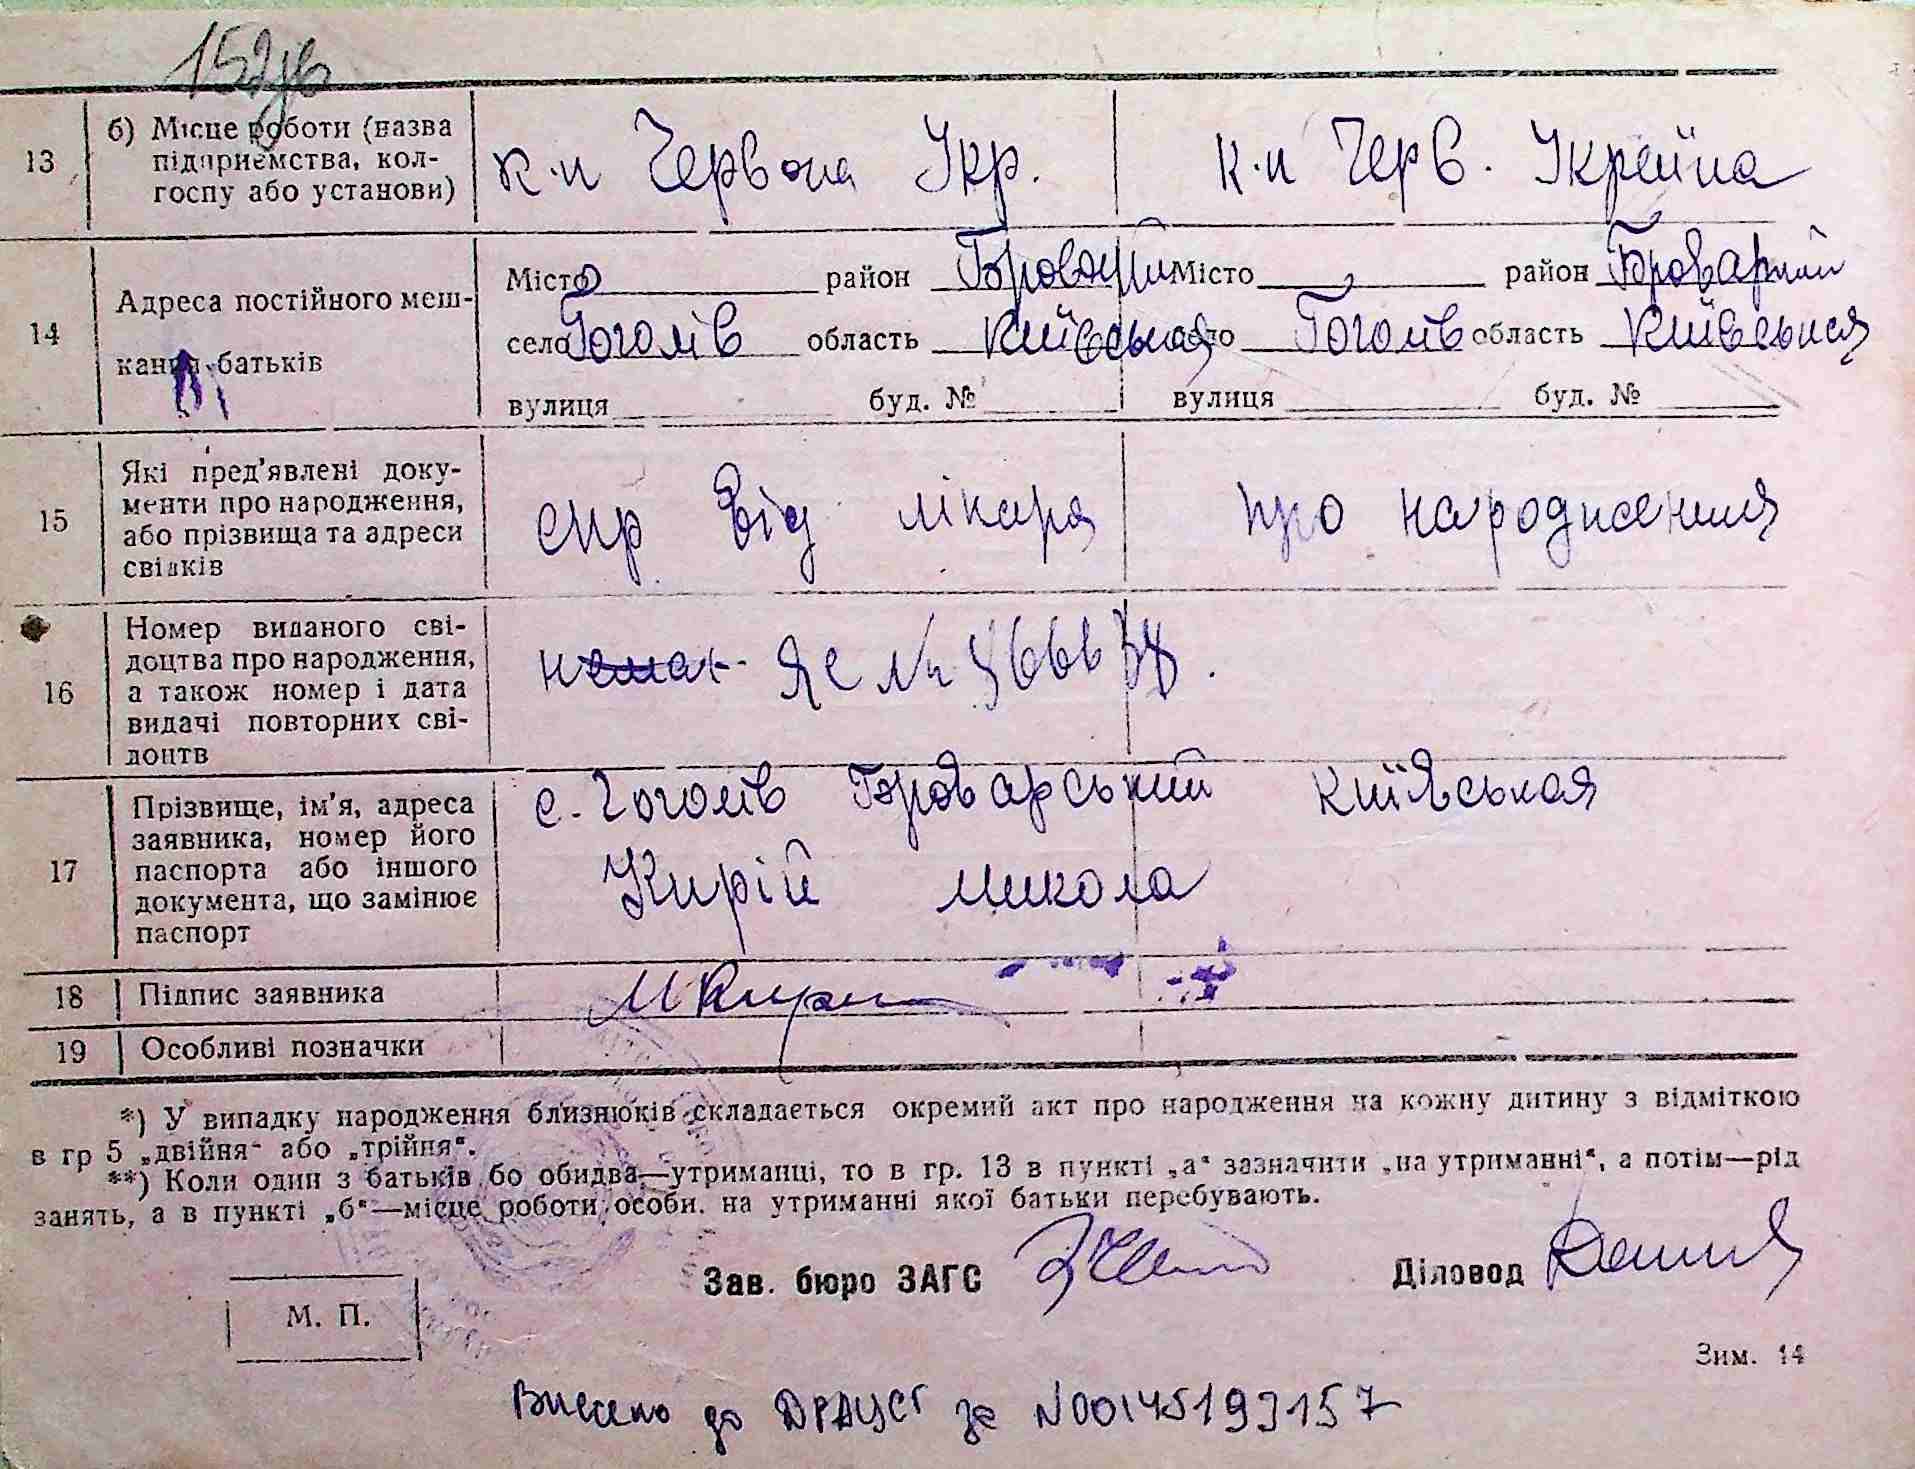 13 б) Місце роботи (назва підприємства, колгоспу або установи) к-п Червона Укр. к-п Черв. Україна
14 Адреса постійного мешкання батьків
Місто район Броварський Місто район Броварський
село Гоголів область Київська село Гоголів область Київська
вулиця буд. № вулиця буд. №
15 Які пред'явлені документи про народження, або прізвища та адреси свідків
спр від лікаря про народження
16 Номер виданого свідоцтва про народження, а також номер і дата видачі повторних свідоцтв
ЯЕ №
17 Прізвище, ім'я, адреса заявника, номер його паспорта або іншого документа, що замінює паспорт
с. Гоголів Броварський Київськая
Кирій Микола
18 Підпис заявника
19 Особливі позначки
*) У випадку народження близнюків складається окремий акт про народження на кожну дитину з відміткою
в гр 5 „двійня" або „трійня".
**) Коли один з батьків бо обидва—утриманці, то в гр. 13 в пункті „а" зазначити „на утриманні", а потім—рід
занять, а в пункті „б"—місце роботи особи. на утриманні якої батьки перебувають.
Зав. бюро ЗАГС Діловод
М. П.
Зим. 14
Внесено до ДРАЦСГ за N00145193157